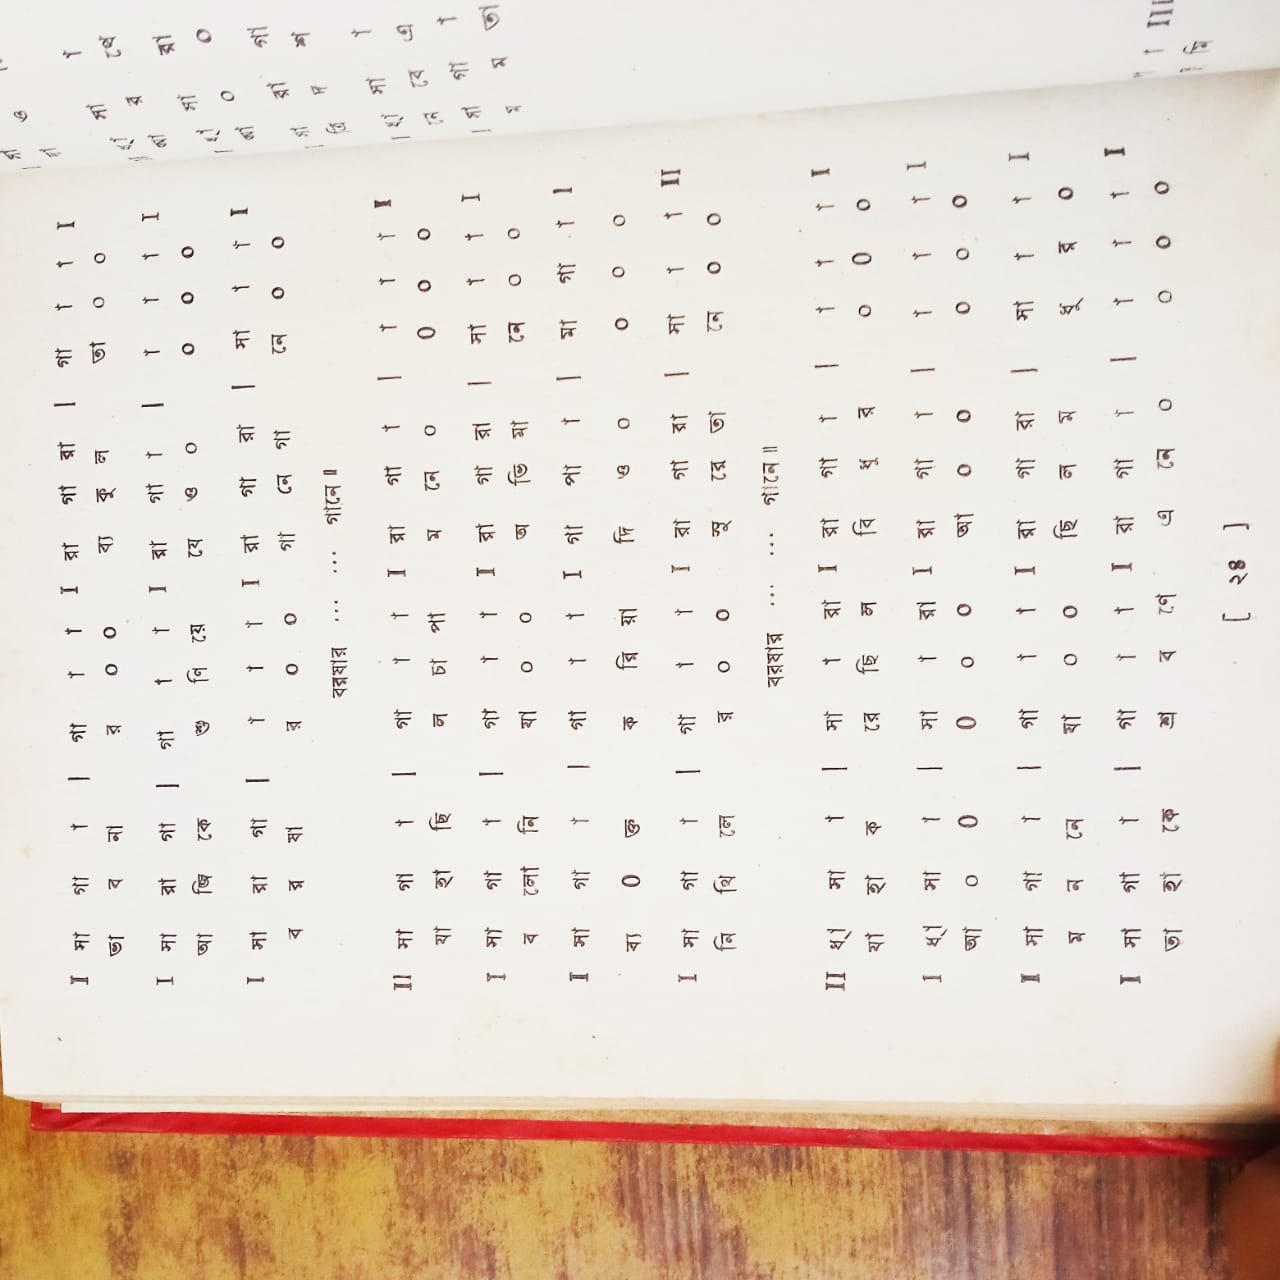 I সা গা া | গা া া I রা গা রা | গা া া I
ভা ব না র ০ ০ ব্য কু ল তা ০ ০
I সা রা গা | গা া া I রা গা া | া া া I
আ জি কে শু নি য়ে যে ও ০ ০ ০ ০
I সা রা গা | া া া I রা গা রা | সা া া I
ব র ষা র ০ ০ গা নে গা নে ০ ০
বরষার ... ... গানে॥
II সা গা া | গা া া I রা গা া | া া া I
যা হা ছি ল চা পা ম নে ০ ০ ০ ০
I সা গা া | গা া া I রা গা রা | সা া া I
ব লো নি যা ০ ০ অ ভি মা নে ০ ০
I সা গা া | গা া া I গা পা া | মা গা া I
ব্য ০ ক্ত ক রি য়া দি ও ০ ০ ০ ০
I সা গা া | গা া া I রা গা রা | সা া া II
নি খি লে র ০ ০ সু রে তা নে ০ ০
বরষার ... ... গানে॥
II ধ্া সা া | সা া রা I রা গা া | া া া I
যা হা ক রে ছি ল বি ধু র ০ ০ ০
I ধ্া সা া | সা া রা I রা গা া | া া া I
আ ০ ০ ০ ০ ০ আ ০ ০ ০ ০ ০
I সা গা া | গা া া I রা গা রা | সা া া I
ম ন নে যা ০ ০ ছি ল ম ধু র ০
I সা গা া | গা া া I রা গা া | া া া I
তা হা কে শ্র ব ণে এ নে ০ ০ ০ ০
[ ২৪ ]